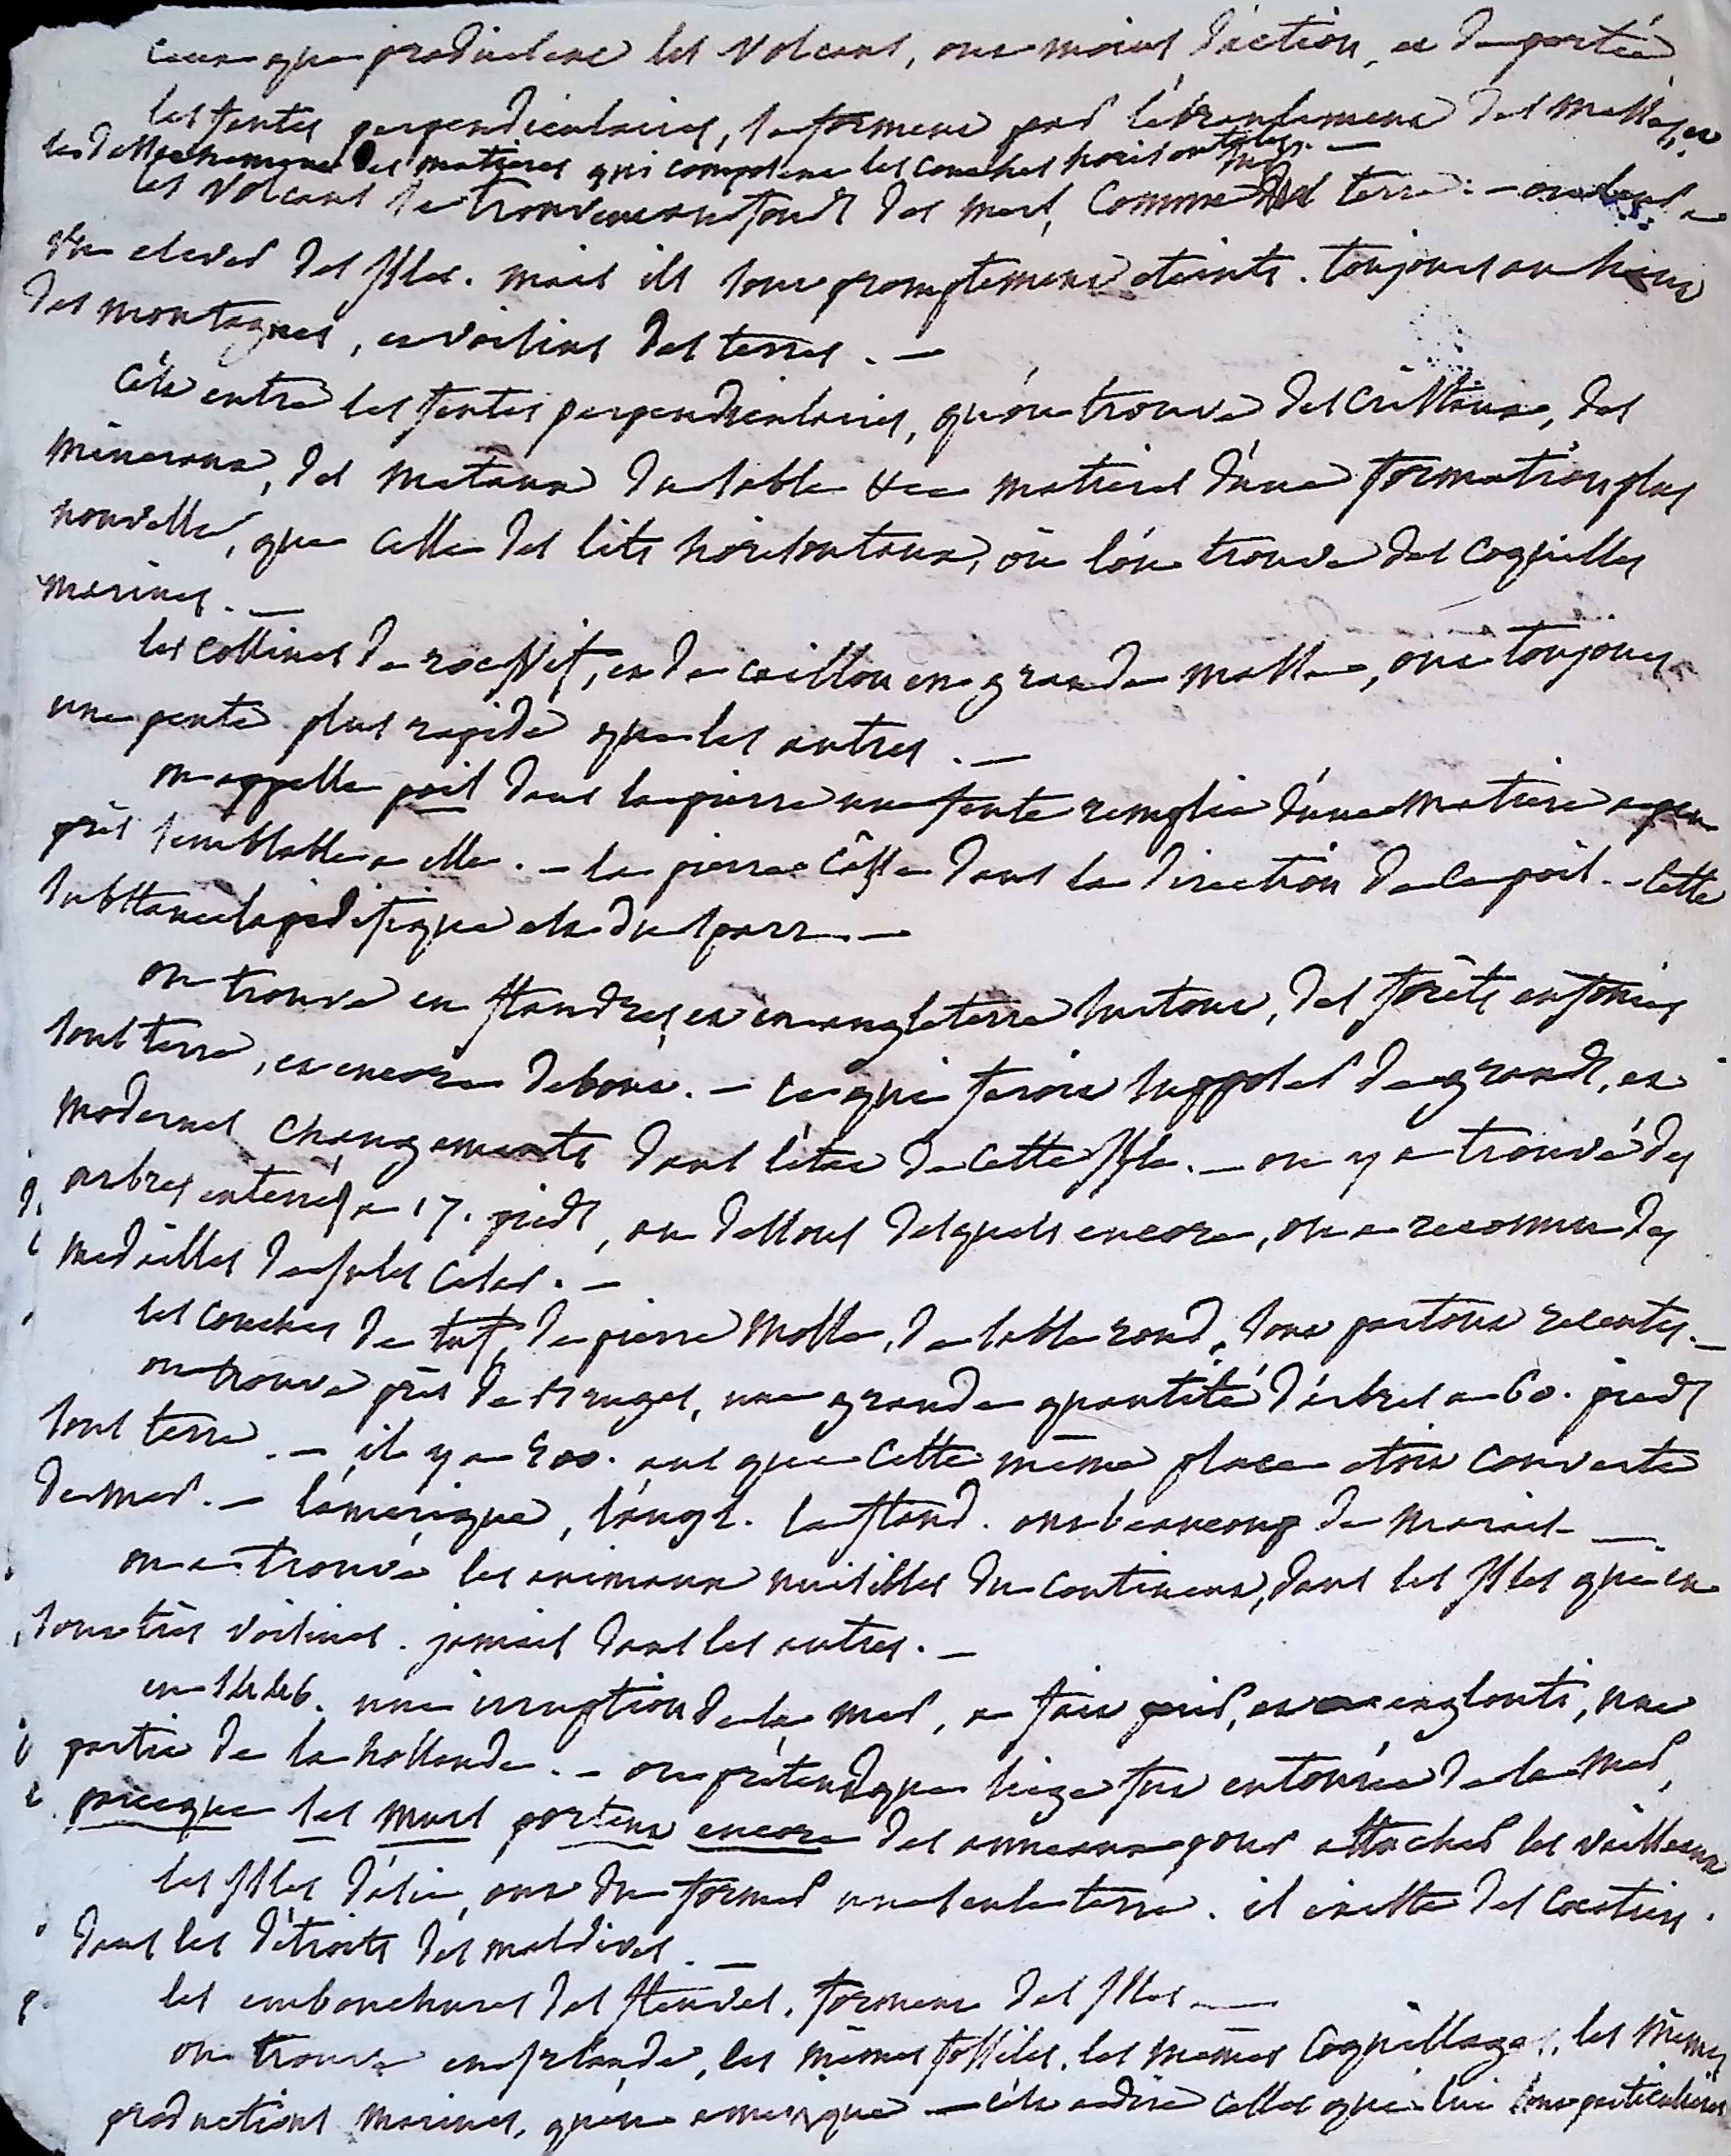 ceux que produisent les volcans, ont moins d'action, et de portée
les fentes perpendiculaires, se forment par l'ébranlement des masses, et
les dessechement des matieres qui composent les couches horisontales. —
les volcans se trouvent au fond des mers, comme sur terre. — on en a
vu elever des Isles. mais ils sont promptement eteints. toujours au haut
des montagnes, et voisins des terres. —
c'est entre les fentes perpendiculaires, qu'on trouve des cristaux, des
mineraux, des metaux du sable &cc matieres d'une formation plus
nouvelle, que celle des lits horisontaux, où l'on trouve des coquilles
marines. —
les collines de roc vif, et de caillou en grande masse, ont toujours
une pente plus rapide que les autres. —
on appelle poil dans la pierre une fente remplie d'une matiere a peu
près semblable a elle. — la pierre casse dans la direction de ce poil. — cette
substance lapidifique est du sparr. —
on trouve en flandres, et en angleterre surtout, des forêts enfouies
sous terre, et encore debout. — ce qui feroit supposer de grands, et
modernes changements dans l'état de cette Isle. — on y a trouvé des
arbres enterrés a 17. pieds, au dessous desquels encore, on a reconnu des
medailles de jules Cesar. —
les couches de tuf, de pierre molle, de sable rond, sont partout recentes. —
on trouve près de Bruges, une grande quantité d'arbres a 60. pieds
sous terre. — il y a 500. ans que cette même place etoit couverte
de mer. — l'amerique, l'angl. la fland. ont beaucoup de marais —
on a trouvé les animaux nuisibles du continent, dans les Isles qui en
sont très voisines. jamais dans les autres. —
en 1446. une irruption de la mer, a fait perir, et englouti, une
partie de la hollande. — on prétend que liege fut entourée de la mer,
parceque les murs portent encore des anneaux pour attacher les vaisseaux
les Isles d'asie, ont du former une seule terre. il existe des cocotiers
dans les détroits des maldives. —
les embouchures des fleuves, forment des Isles —
on trouve en Irlande, les mêmes fossiles, les mêmes coquillages, les mêmes
productions marines, qu'en amerique — c'est a dire celles qui lui sont particulieres